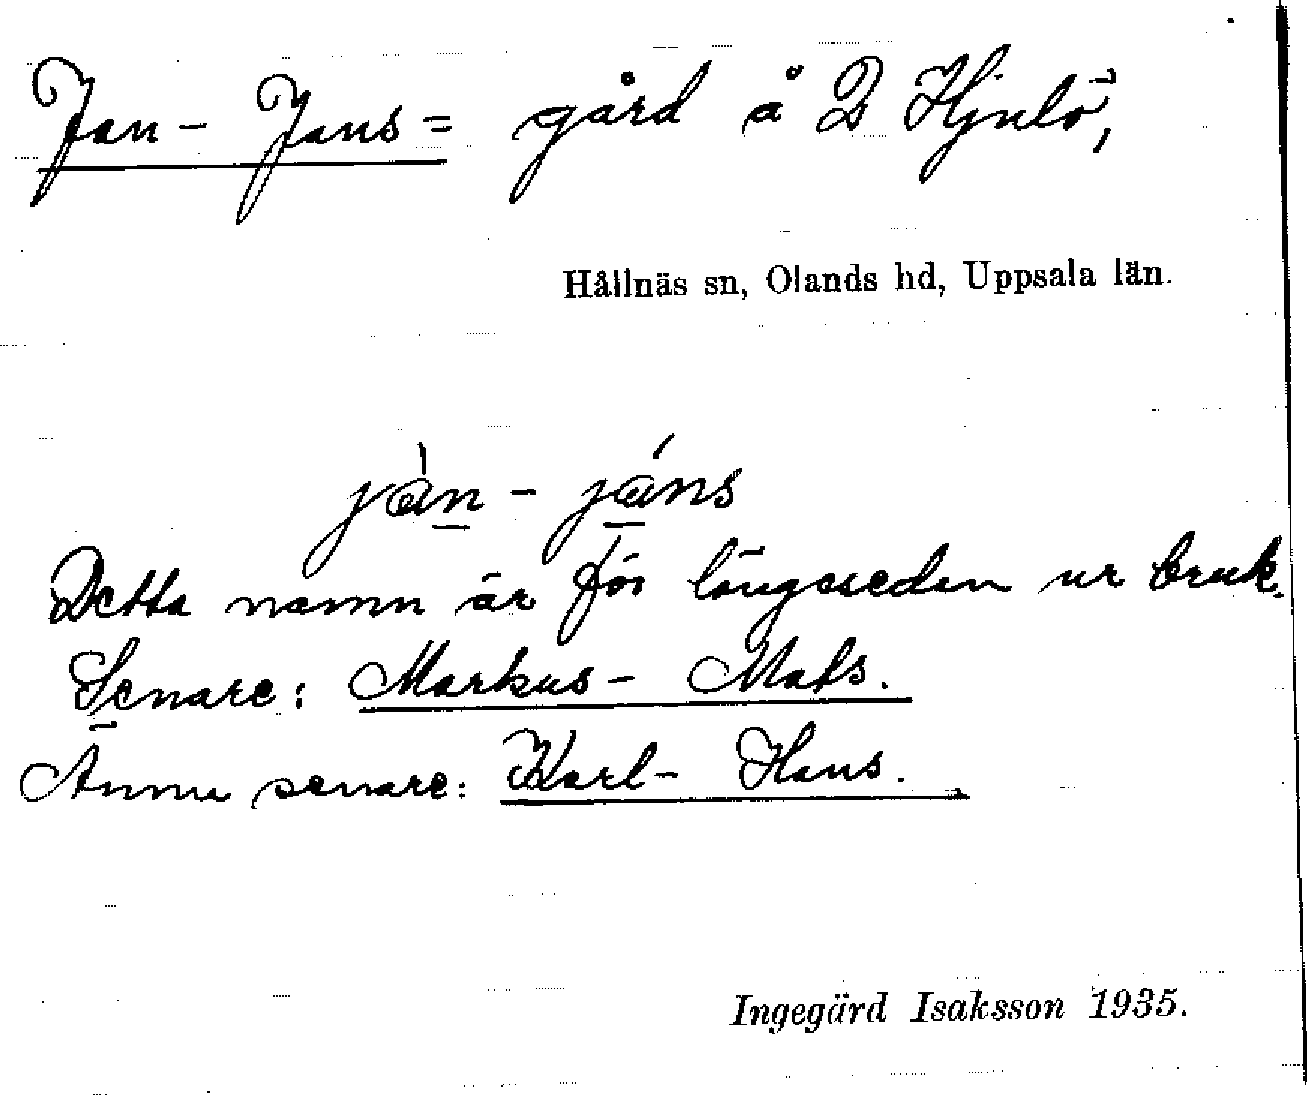 Jan- Jans= gård å D Hjälö,
Hållnäs sn, Olands hd, Uppsala län.
jan - jáns
Detta namn är för längesedan ur bruk.
Senare: Markus- Mats.
Ännu senare: Karl- Hans.
Ingegärd Isaksson 1935.